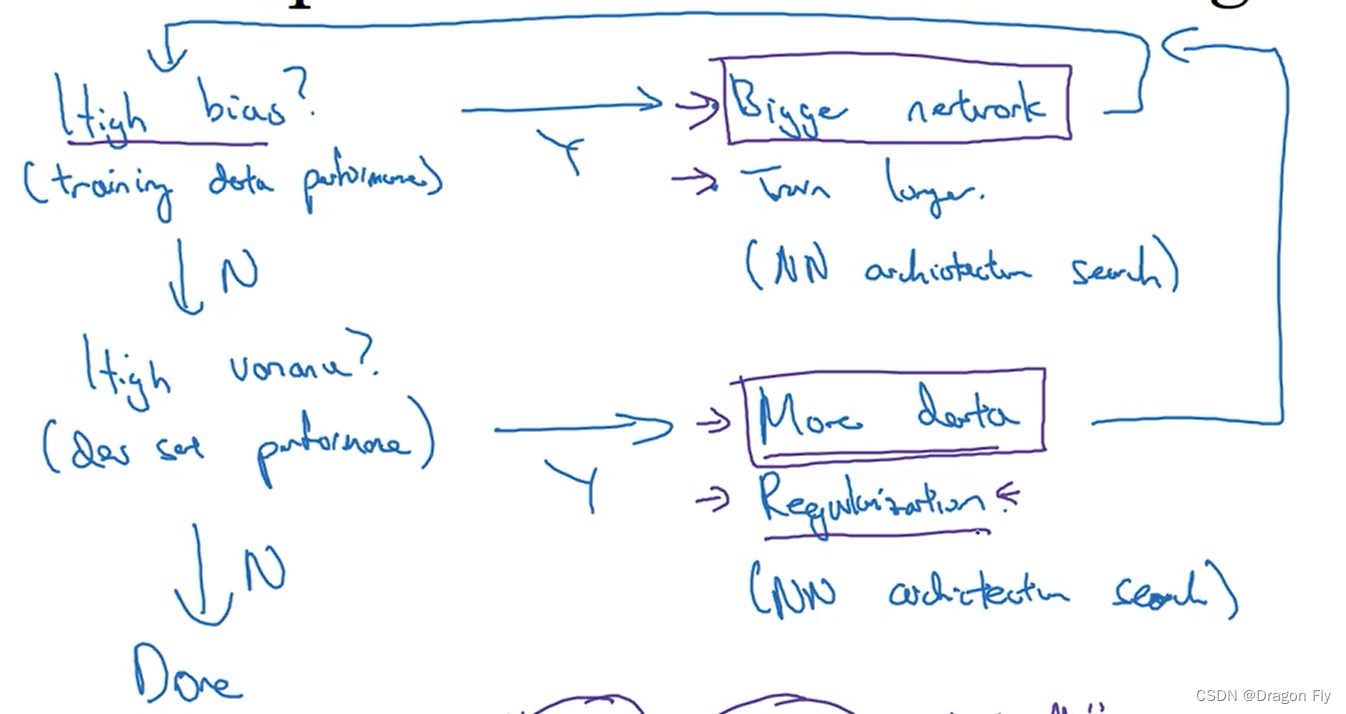 High bias?
(training data performance)
Y
Bigger network
Train longer.
(NN architecture search)
N
High variance?
(dev set performance)
Y
More data
Regularization.
(NN architecture search)
N
Done
CSDN @Dragon Fly